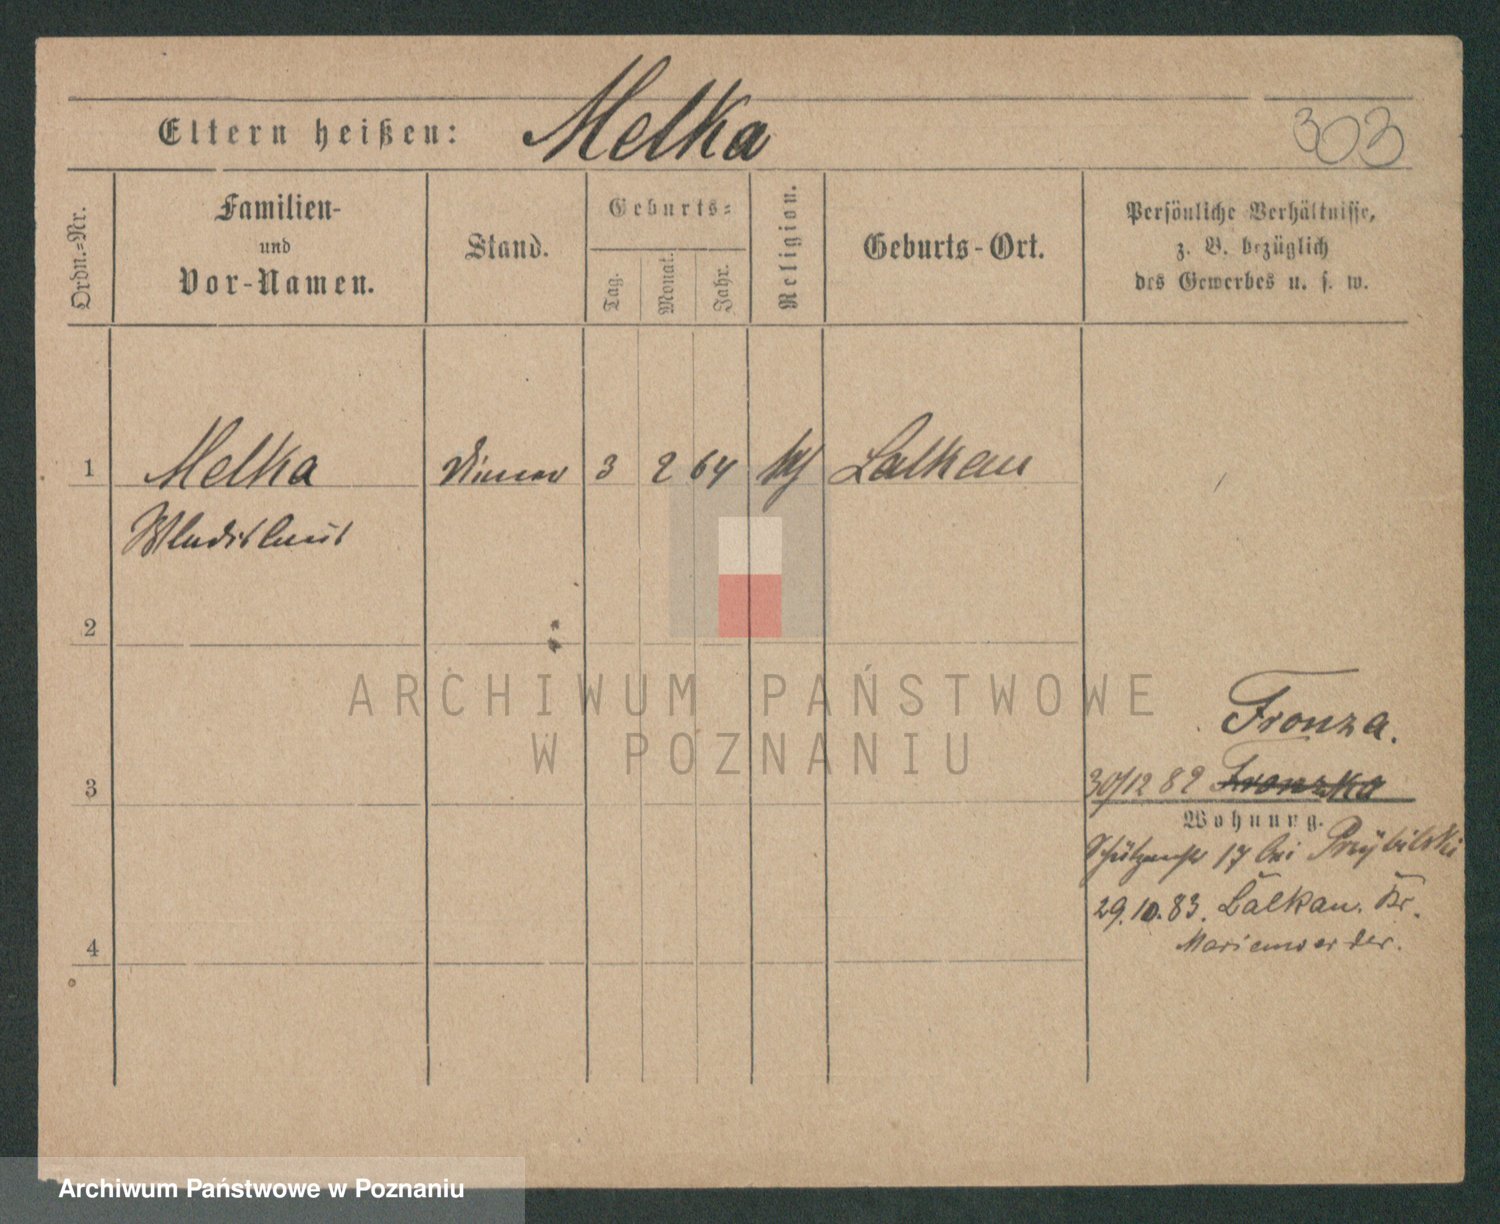 Eltern heißen: Melka 303
Ordn.-Nr.
Familien-
und
Vor-Namen.
Stand.
Geburts-
Tag.
Monat.
Jahr.
Religion.
Geburts-Ort.
Persönliche Verhältnisse,
z. B. bezüglich
des Gewerbes u. s. w.
1 Melka Diener 3 2 64 Lalkau
Wladislaus
2
3
4
Fronza.
30/12 82 Fronzka
Wohnung.
Schützenstr 17 bei Przybilski
29.10.83. Lalkau. Kr.
Marienwerder.
ARCHIWUM PAŃSTWOWE
W POZNANIU
Archiwum Państwowe w Poznaniu